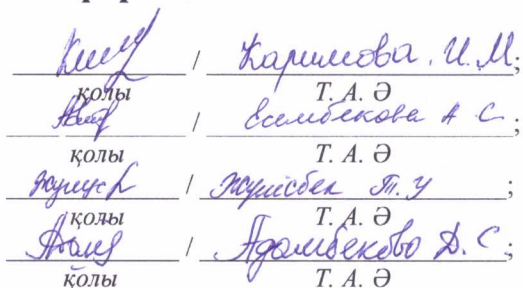 / Каримова. И. М;
қолы Т. А. Ә
/ Есимбекова А С;
қолы Т. А. Ә
/ Жүнісбек Т. У;
қолы Т. А. Ә
/ Адамбекова Д. С;
қолы Т. А. Ә